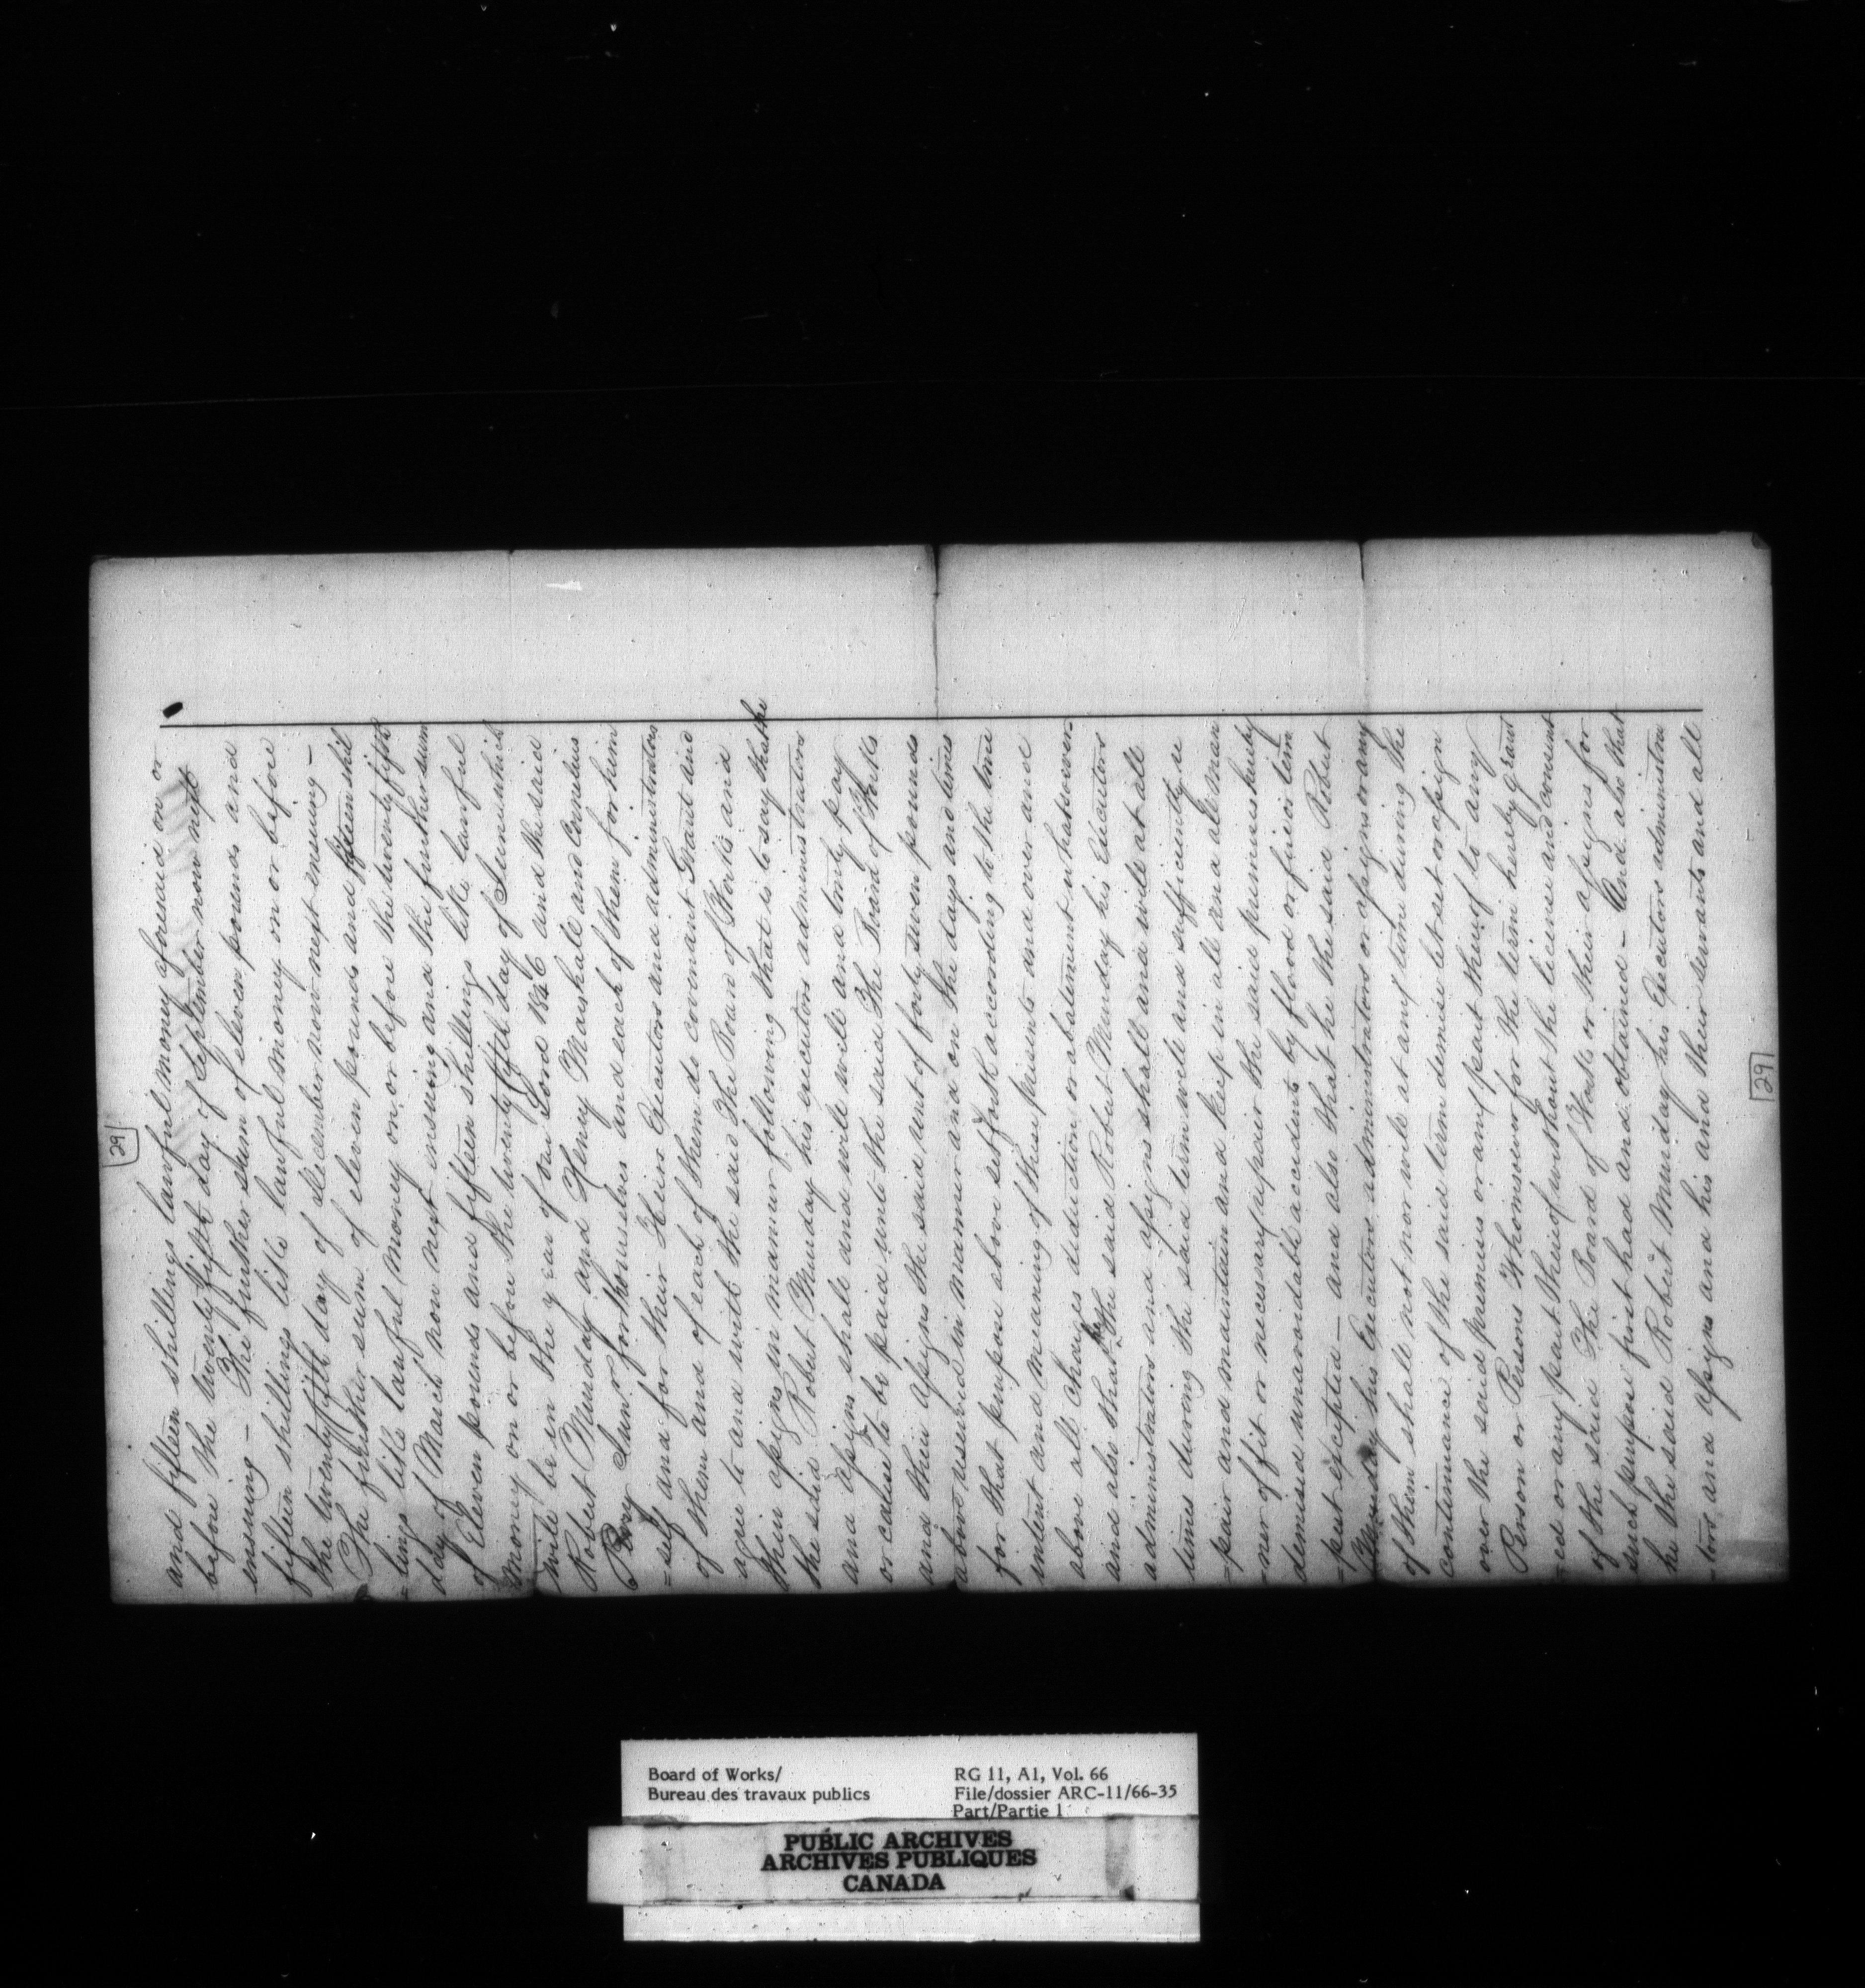 29
and fifteen shillings lawful money aforesaid on or
before the twenty fifth day of September now next
ensuing - The further sum of eleven pounds and
fifteen shillings like lawful money on or before
the twenty fifth day of December now next ensuing -
The further sum of eleven pounds and fifteen shil
=lings like lawful money on or before the twenty fifth
day of March now next ensuing and the further sum
of Eleven pounds and fifteen shillings like lawful
money on or before the twenty fifth day of June which
will be in the year of our Lord 1846 and the said
Robert Munday and Henry Marshall and Cornelius
=self and for their Heirs Executors and administrators
of them and of each of them do covenant Grant and
agree to and with the said The Board of Works and
their assigns in manner following that is to say that he
the said Robert Munday his executors administrators
and assigns shall and will well and truly pay
or cause to be paid unto the said The Board of Works
and their assigns the said rent of forty seven pounds
above reserved in manner and on the days and times
for that purpose above set forth according to the true
intent and meaning of these presents and over and
above all charges deduction or abatement whatsoever
and also that he the said Robert Munday his Executors
administrators and assigns shall and will at all
times during the said term well and sufficiently re
=pair and maintain and keep in all and all man
=ner of fit or necessary repair the said premises hereby
demised unavoidable accidents by flood or fire or time
=pest excepted - and also that he the said Robert
Munday his Executors administrators or assigns or any
of them shall not nor will at any time during the
continuance of the said term demise let set or assign
over the said premises or any part thereof to any
Person or Persons Whomsoever for the term hereby Grant
=ed or any part thereof without the license and consent
of the said The Board of Works or their assigns for
such purpose first had and obtained - And also that
he the said Robert Munday his Executors administra
=tors and assigns and his and their servants and all
29
Board of Works/
Bureau des travaux publics
RG 11, A1, Vol. 66
File/dossier ARC-11/66-35
Part/Partie 1
PUBLIC ARCHIVES
ARCHIVES PUBLIQUES
CANADA